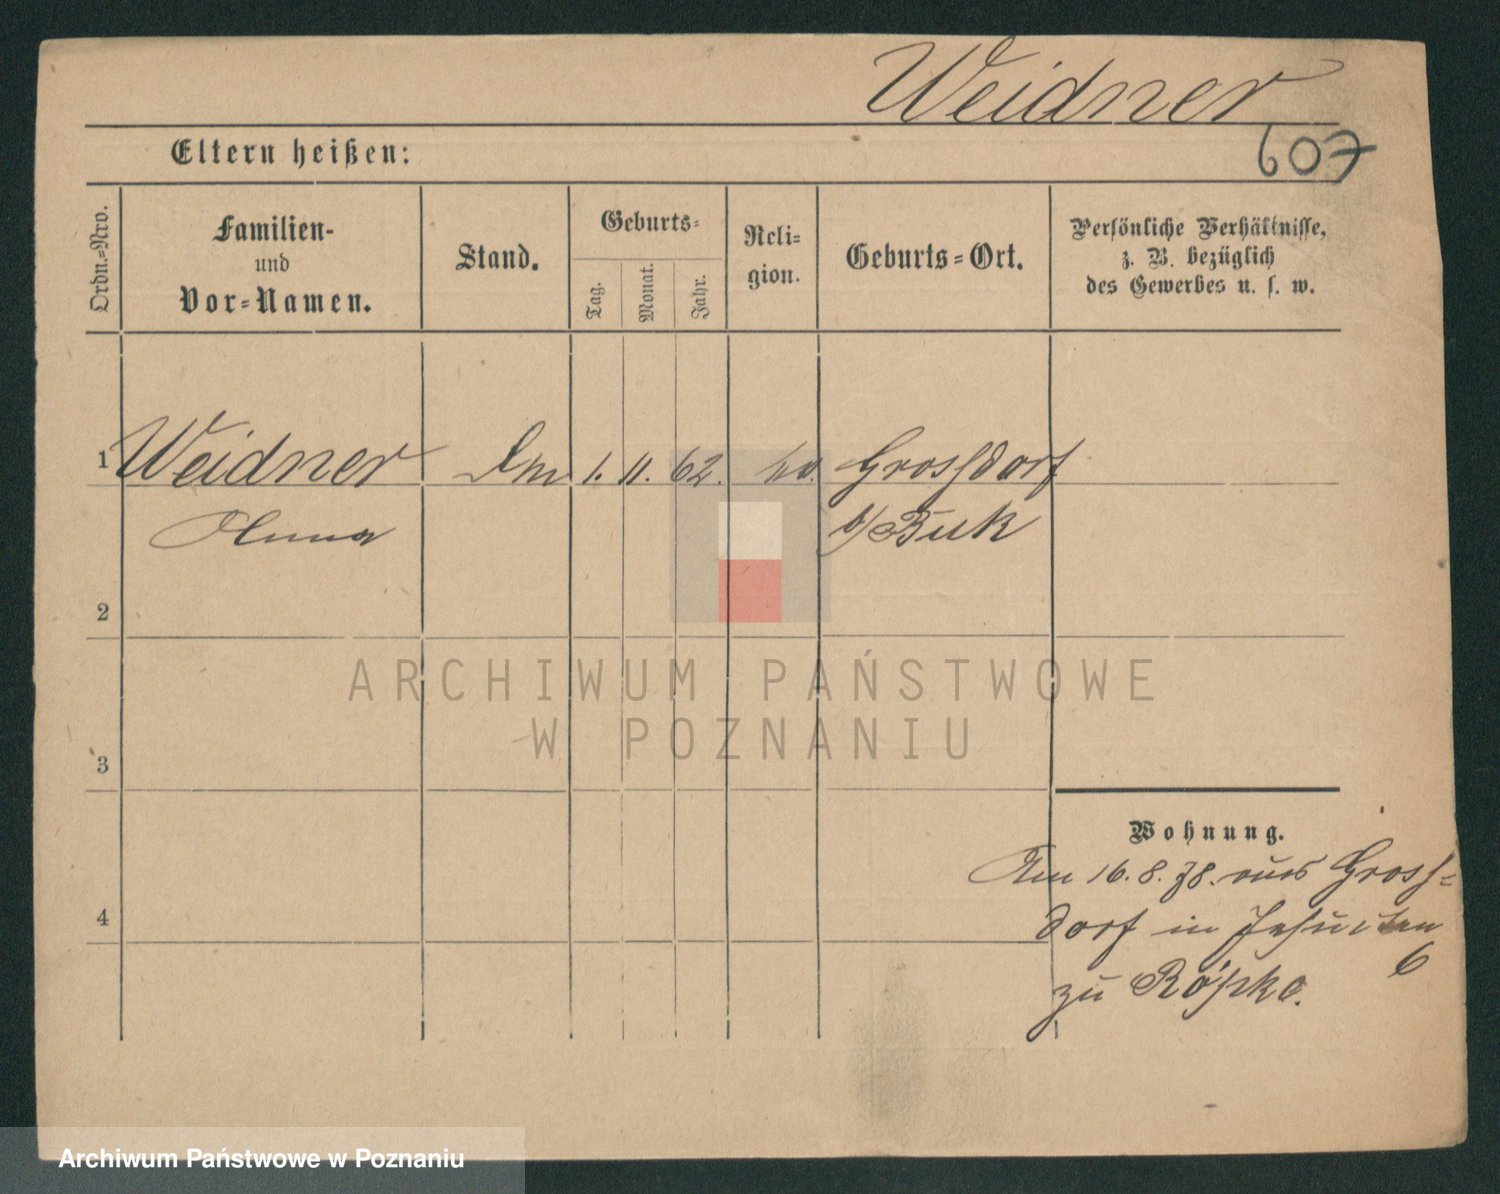 Weidner
607
Eltern heißen:
Ordn.-Nro.
Familien-
und
Vor-Namen.
Stand.
Geburts-
Tag.
Monat.
Jahr.
Reli-
gion.
Geburts-Ort.
Persönliche Verhältnisse,
z. B. bezüglich
des Gewerbes u. s. w.
1 Weidner 1. 11. 62. Grossdorf
Anna b/Buk
2
ARCHIWUM PAŃSTWOWE
W POZNANIU
3
Wohnung.
Am 16. 8. 78. aus Gross-
4
dorf in Jesuiten
6
zu Röpke.
Archiwum Państwowe w Poznaniu